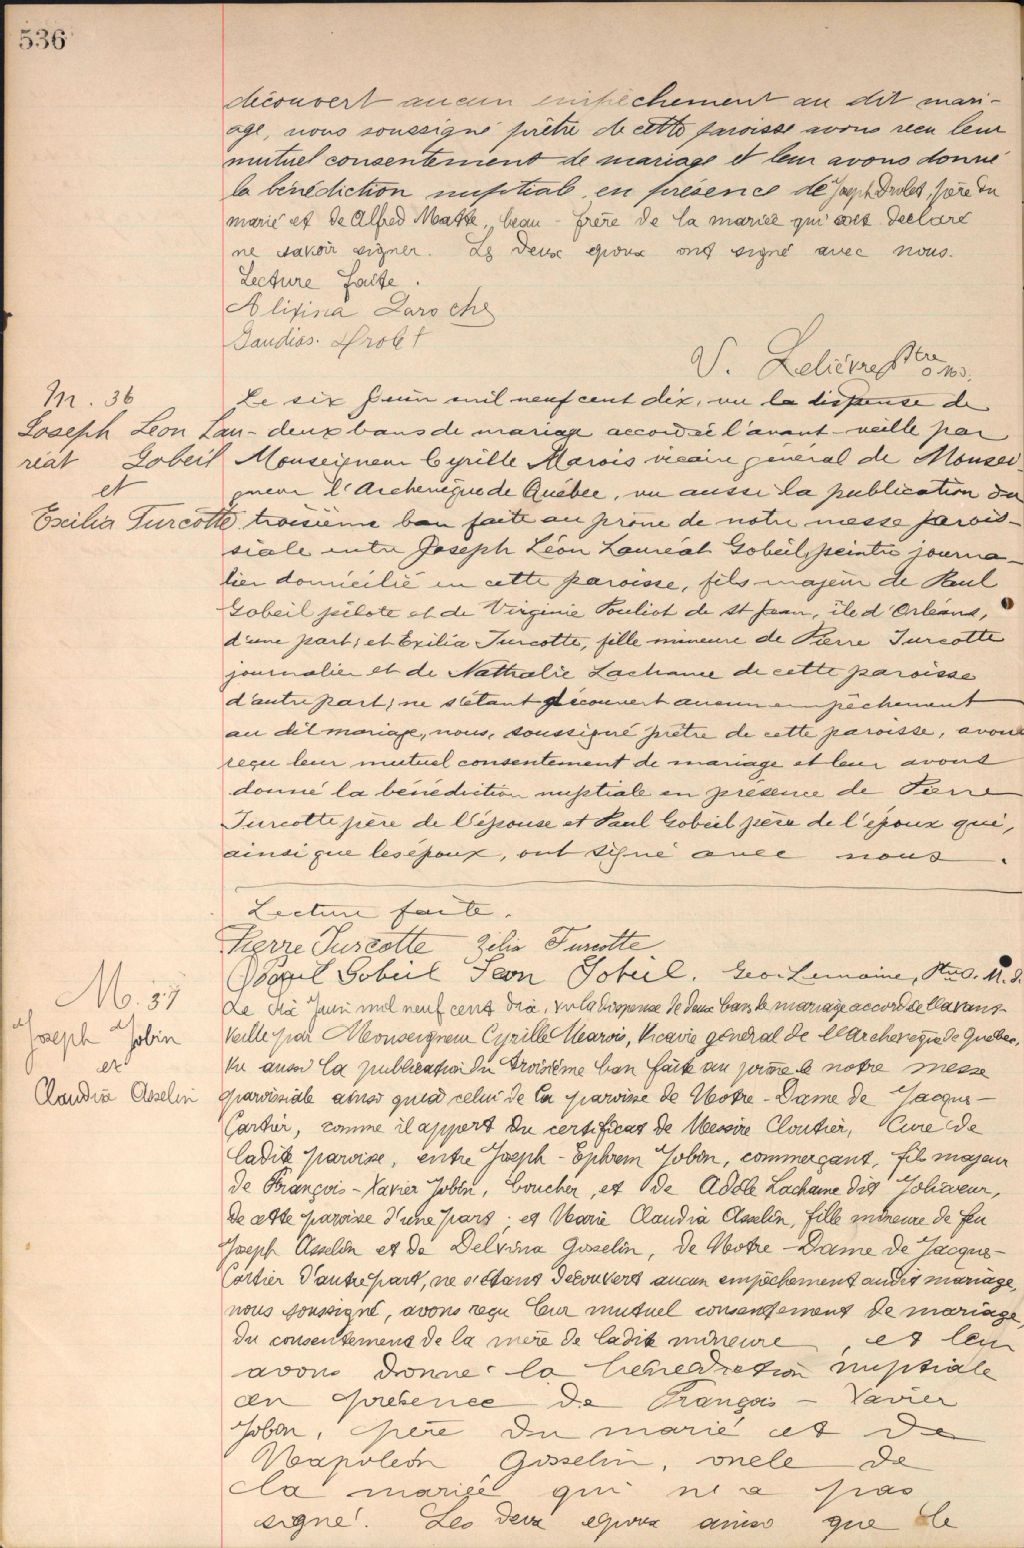 536
découvert aucun empêchement au dit mari-
age, nous soussigné prêtre de cette paroisse avons reçu leur
mutuel consentement de mariage et leur avons donné
la bénédiction nuptiale en présence de Joseph Drolet, père du
marié et de Alfred Matte, beau-frère de la mariée qui ont déclaré
ne savoir signer. Les deux époux ont signé avec nous.
Lecture faite.
Alixina Laroche
Gaudias. Drolet
V. Lelièvre Ptre
o.m.i.
M. 36
Joseph Léon Lau-
réat Gobeil
et
Exilia Turcotte
Le six Juin mil neuf cent dix, vu la dispense de
deux bans de mariage accordée l'avant-veille par
Monseigneur Cyrille Marois vicaire général de Monsei-
gneur l'Archevêque de Québec, vu aussi la publication du
troisième ban faite au prône de notre messe parois-
siale entre Joseph Léon Lauréat Gobeil, peintre journa-
lier domicilié en cette paroisse, fils majeur de Paul
Gobeil pilote et de Virginie Pouliot de St Jean, île d'Orléans,
d'une part; et Exilia Turcotte, fille mineure de Pierre Turcotte
journalier et de Nathalie Lachance de cette paroisse
d'autre part; ne s'étant découvert aucun empêchement
au dit mariage, nous, soussigné prêtre de cette paroisse, avons
reçu leur mutuel consentement de mariage et leur avons
donné la bénédiction nuptiale en présence de Pierre
Turcotte père de l'épouse et Paul Gobeil père de l'époux qui,
ainsi que les époux, ont signé avec nous.
Lecture faite.
Pierre Turcotte Zilia Turcotte
Paul Gobeil Leon Gobeil. Geo. Lemoine, Ptre O.M.I.
M. 37
Joseph Jobin
et
Claudia Asselin
Le dix Juin mil neuf cent dix, vu la dispense de deux bans de mariage accordée l'avant-
veille par Monseigneur Cyrille Marois, Vicaire général de l'Archevêque de Québec,
vu aussi la publication du troisième ban faite au prône de notre messe
paroissiale ainsi qu'à celui de la paroisse de Notre-Dame de Jacques-
Cartier, comme il appert du certificat de Messire Cloutier, Curé de
ladite paroisse, entre Joseph-Ephrem Jobin, commerçant, fils majeur
de François-Xavier Jobin, boucher, et de Adèle Lachance dit Jolicoeur,
de cette paroisse d'une part; et Marie Claudia Asselin, fille mineure de feu
Joseph Asselin et de Delvina Gosselin, de Notre-Dame de Jacques-
Cartier d'autre part, ne s'étant découvert aucun empêchement audit mariage,
nous soussigné, avons reçu leur mutuel consentement de mariage,
du consentement de la mère de ladite mineure, et leur
avons donné la bénédiction nuptiale
en présence de François-Xavier
Jobin, père du marié et de
Napoléon Gosselin, oncle de
la mariée qui n'a pas
signé. Les deux époux ainsi que le